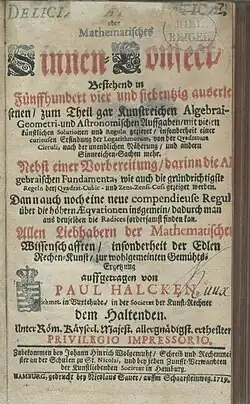 DELICI
oder
Mathematisches
Sinnen-Confect
Bestehend in
Fünffhundert vier und siebentzig außerle
senen / zum Theil gar Kunstreichen Algebrai-
Geometri- und Astronomischen Auffgaben / mit vielen
künstlichen Solutionen und Reguln gezieret / insonderheit einer
curieusen Erfindung der Logarithmorum, von der Quadratur
Circuli, nach der unendlichen Näherung / und andern
Sinnreichen Sachen mehr.
Nebst einer Vorbereitung / darinn die Al
gebraischen Fundamenta, wie auch die gründrichtigste
Reguln der Quadrat-Cubic- und Zens-Zens-Coss gezeiget werden.
Dann auch noch eine neue compendieuse Regul
über die höhern Æqvationen insgemein / dadurch man
aus denselben die Radices iederzeit finden kan.
Allen Liebhabern der Mathematischen
Wissenschafften / insonderheit der Edlen
Rechen-Kunst / zur wohlgemeinten Gemühts-
Ergetzung
auffgetragen von
PAUL HALCKEN,
Buxtehude / in der Societät der Kunst-Rechner
dem Haltenden.
Unter Röm. Käysel. Majest. allergnädigst ertheilter
PRIVILEGIO IMPRESSORIO.
Zubekommen bey Johann Hinrich / Schreib und Rechenmei
ster an der Schulen zu St. Nicolai, und bey jeden Kunst-Verwandten
der Kunstliebenden Societät in Hamburg.
HAMBURG, gedruckt bey Nicolaus Sauer / auffm Schaarsteinweg. 1719.